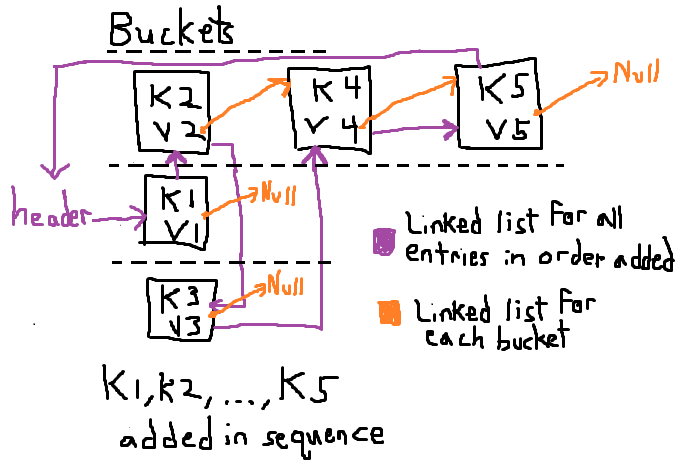 Buckets
K2
V2
K4
V4
K5
V5
Null
header
K1
V1
Null
K3
V3
Null
Linked list for all
entries in order added
Linked list for
each bucket
K1,k2,...,K5
added in sequence